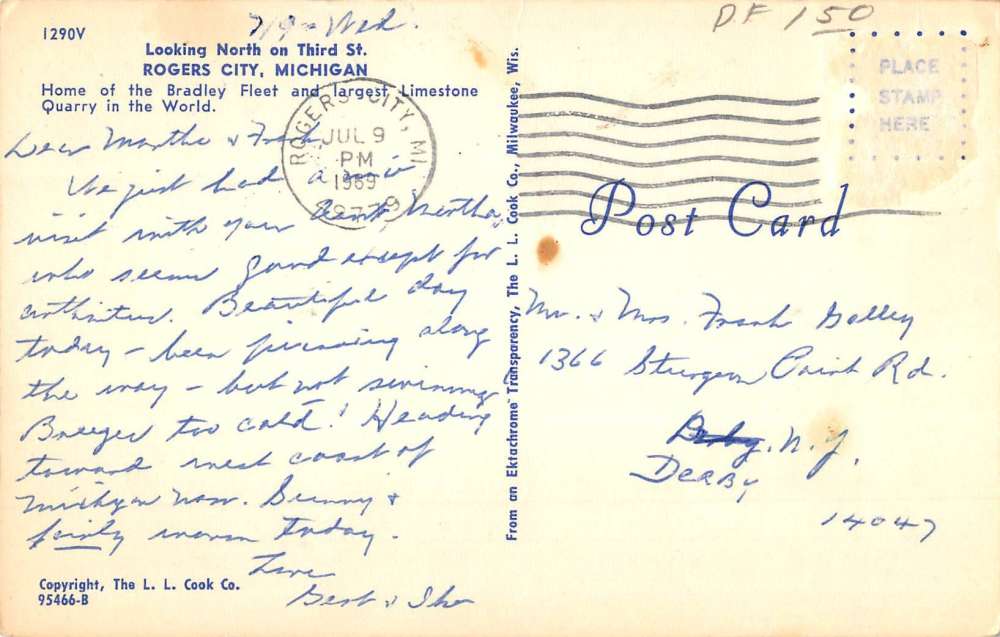 1290V
7/9 - Wed.
DF 150
Looking North on Third St.
ROGERS CITY, MICHIGAN
Home of the Bradley Fleet and largest Limestone
Quarry in the World.
ROGERS CITY, MI
JUL 9
PM
1969
49779
Dear Martha & Frank
We just had a nice
visit with your Aunt Martha,
who seems good except for
arthritus. Beautiful day
today - been picnicing along
the way - but not swimming
Breezes too cold! Heading
toward west coast of
Michigan now. Sunny &
fairly warm today.
Love
Gert &
Copyright, The L. L. Cook Co.
95466-B
From an Ektachrome Transparency, The L. L. Cook Co., Milwaukee, Wis.
PLACE
STAMP
HERE
Post Card
Mr. & Mrs. Frank Golley
1366 Sturgeon Point Rd.
N.Y.
DERBY
14047